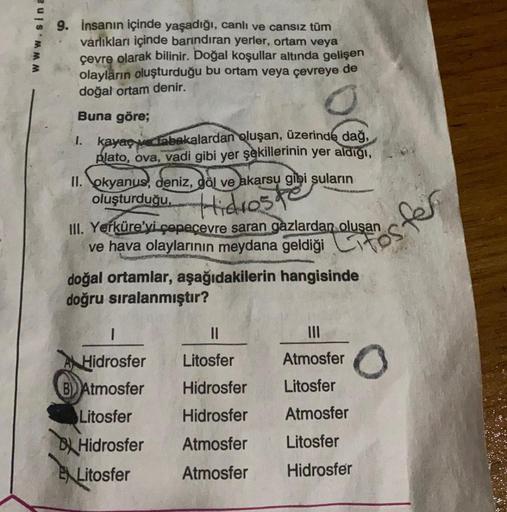 www.sina
9. İnsanın içinde yaşadığı, canlı ve cansız tüm
varlıkları içinde barındıran yerler, ortam veya
çevre olarak bilinir. Doğal koşullar altında gelişen
olayların oluşturduğu bu ortam veya çevreye de
doğal ortam denir.
Buna göre;
I. kayaç ve tabakalardan oluşan, üzerinde dağ,
plato, ova, vadi gibi yer şekillerinin yer aldığı,
II. okyanus, deniz, göl ve akarsu gibi suların
oluşturduğu,
Hidrosfe
III. Yerküre'yi çepeçevre saran gazlardan oluşan
ve hava olaylarının meydana geldiği
Litosfer
doğal ortamlar, aşağıdakilerin hangisinde
doğru sıralanmıştır?
I II III
A) Hidrosfer Litosfer Atmosfer
B) Atmosfer Hidrosfer Litosfer
Litosfer Hidrosfer Atmosfer
D) Hidrosfer Atmosfer Litosfer
E) Litosfer Atmosfer Hidrosfer